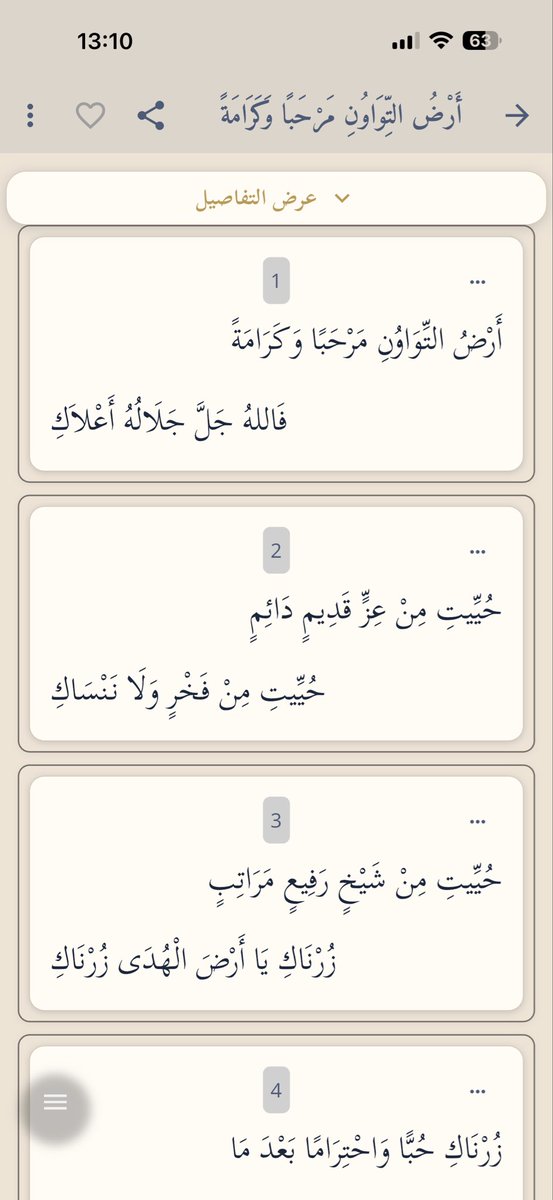 13:10
63
أَرْضُ التِّوَاوُنِ مَرْحَبًا وَكَرَامَةً
عرض التفاصيل
1
أَرْضُ التِّوَاوُنِ مَرْحَبًا وَكَرَامَةً
فَاللهُ جَلَّ جَلَالُهُ أَعْلاَكِ
2
حُيِّيتِ مِنْ عِزٍّ قَدِيمٍ دَائِمٍ
حُيِّيتِ مِنْ فَخْرٍ وَلَا نَنْسَاكِ
3
حُيِّيتِ مِنْ شَيْخٍ رَفِيعٍ مَرَاتِبٍ
زُرْنَاكِ يَا أَرْضَ الْهُدَى زُرْنَاكِ
4
زُرْنَاكِ حُبًّا وَاحْتِرَامًا بَعْدَ مَا